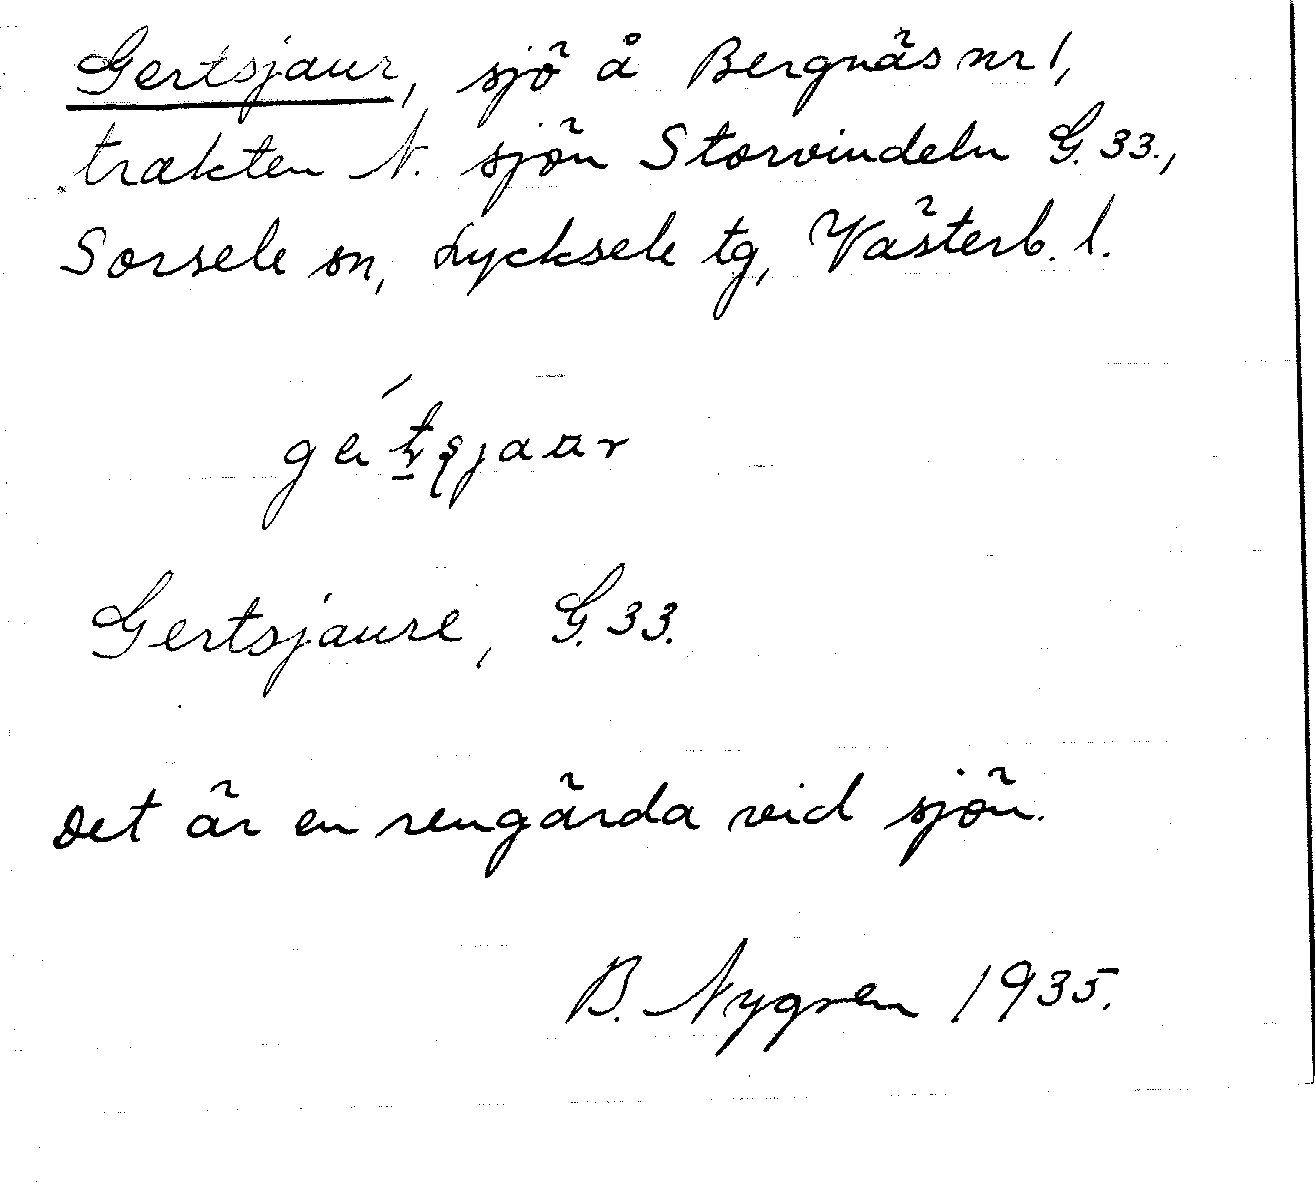 Gertsjaur, sjö å Bergnäs nr 1,
trakten N. sjön Storvindeln G. 33.,
Sorsele sn, Lycksele tg, Västerb. l.
Gertsjaure, G. 33.
Det är en rengärda vid sjön.
B. Nygren 1935.